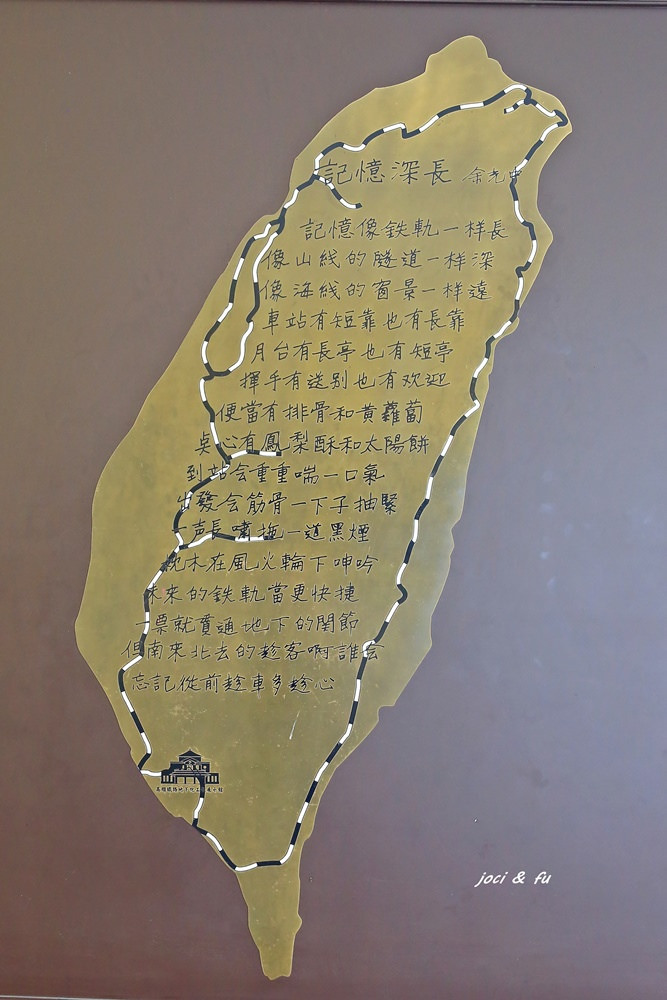 記憶深長 余光中
記憶像鉄軌一样長
像山线的隧道一样深
像海线的窗景一样遠
車站有短靠也有長靠
月台有長亭也有短亭
揮手有送别也有欢迎
便當有排骨和黄蘿蔔
点心有鳳梨酥和太陽餅
到站会重重喘一口氣
出發会筋骨一下子抽緊
一声長嘯拖一道黑煙
枕木在風火輪下呻吟
未來的鉄軌當更快捷
一票就貫通地下的関節
但南來北去的趁客啊誰会
忘記從前趁車多趁心
高雄鐵路地下化
joci & fu